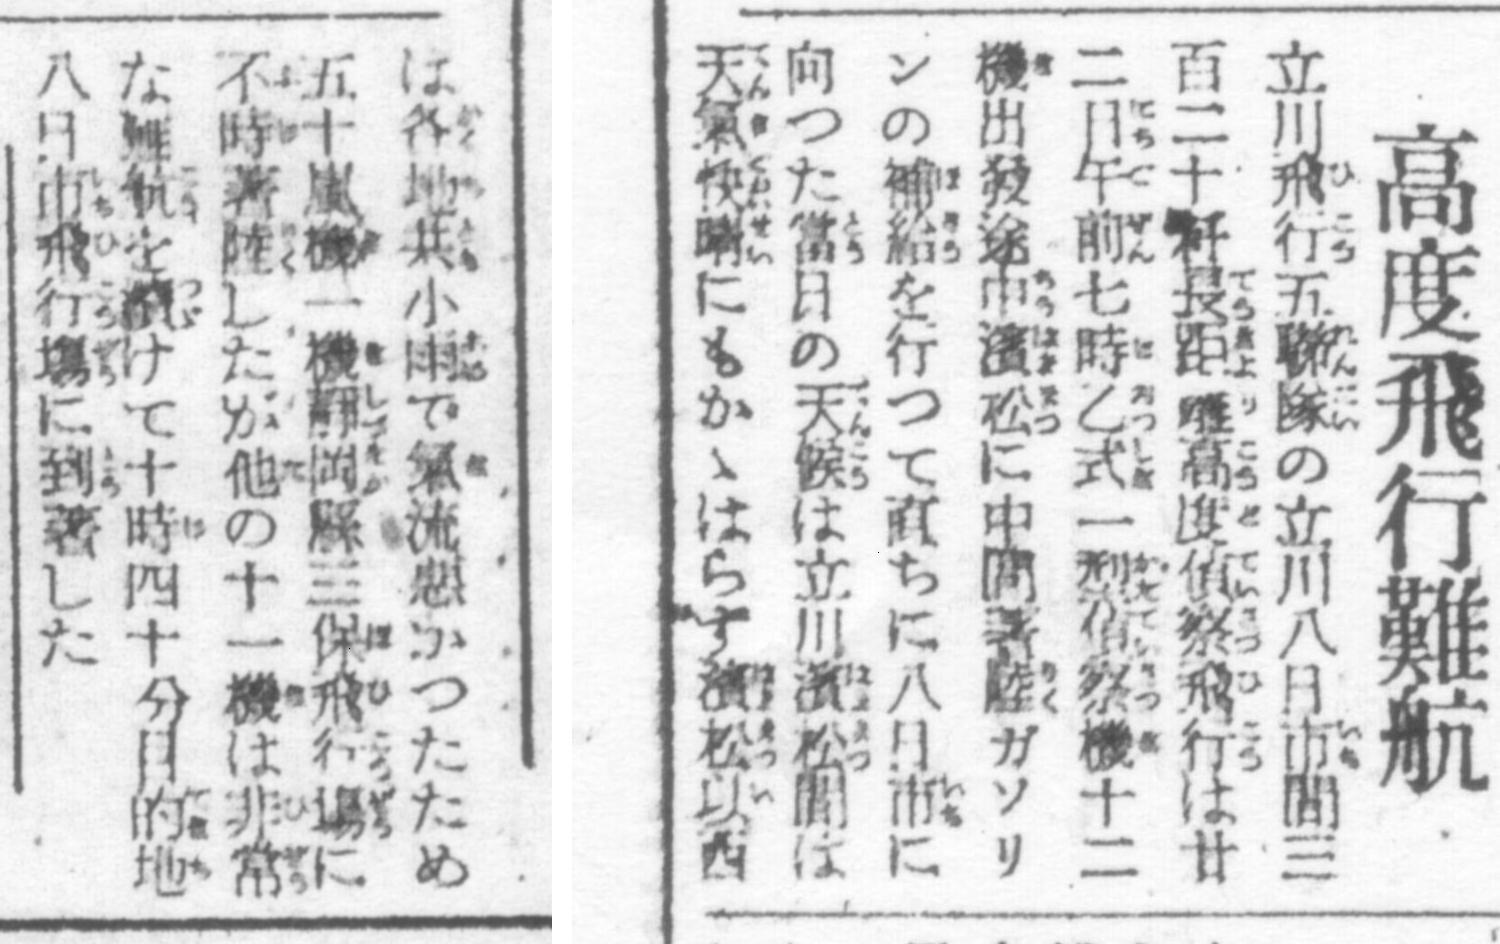 高度飛行難航
立川飛行五聯隊の立川八日市間三
百二十粁長距離高度偵察飛行は廿
二日午前七時乙式一型偵察機十二
機出發途中濱松に中間著陸ガソリ
ンの補給を行つて直ちに八日市に
向つた當日の天候は立川濱松間は
天氣快晴にもかゝはらす濱松以西
は各地共小雨で氣流悪かつたため
五十嵐機一機靜岡縣三保飛行場に
不時著陸したが他の十一機は非常
な難航を續けて十時四十分目的地
八日市飛行場に到著した